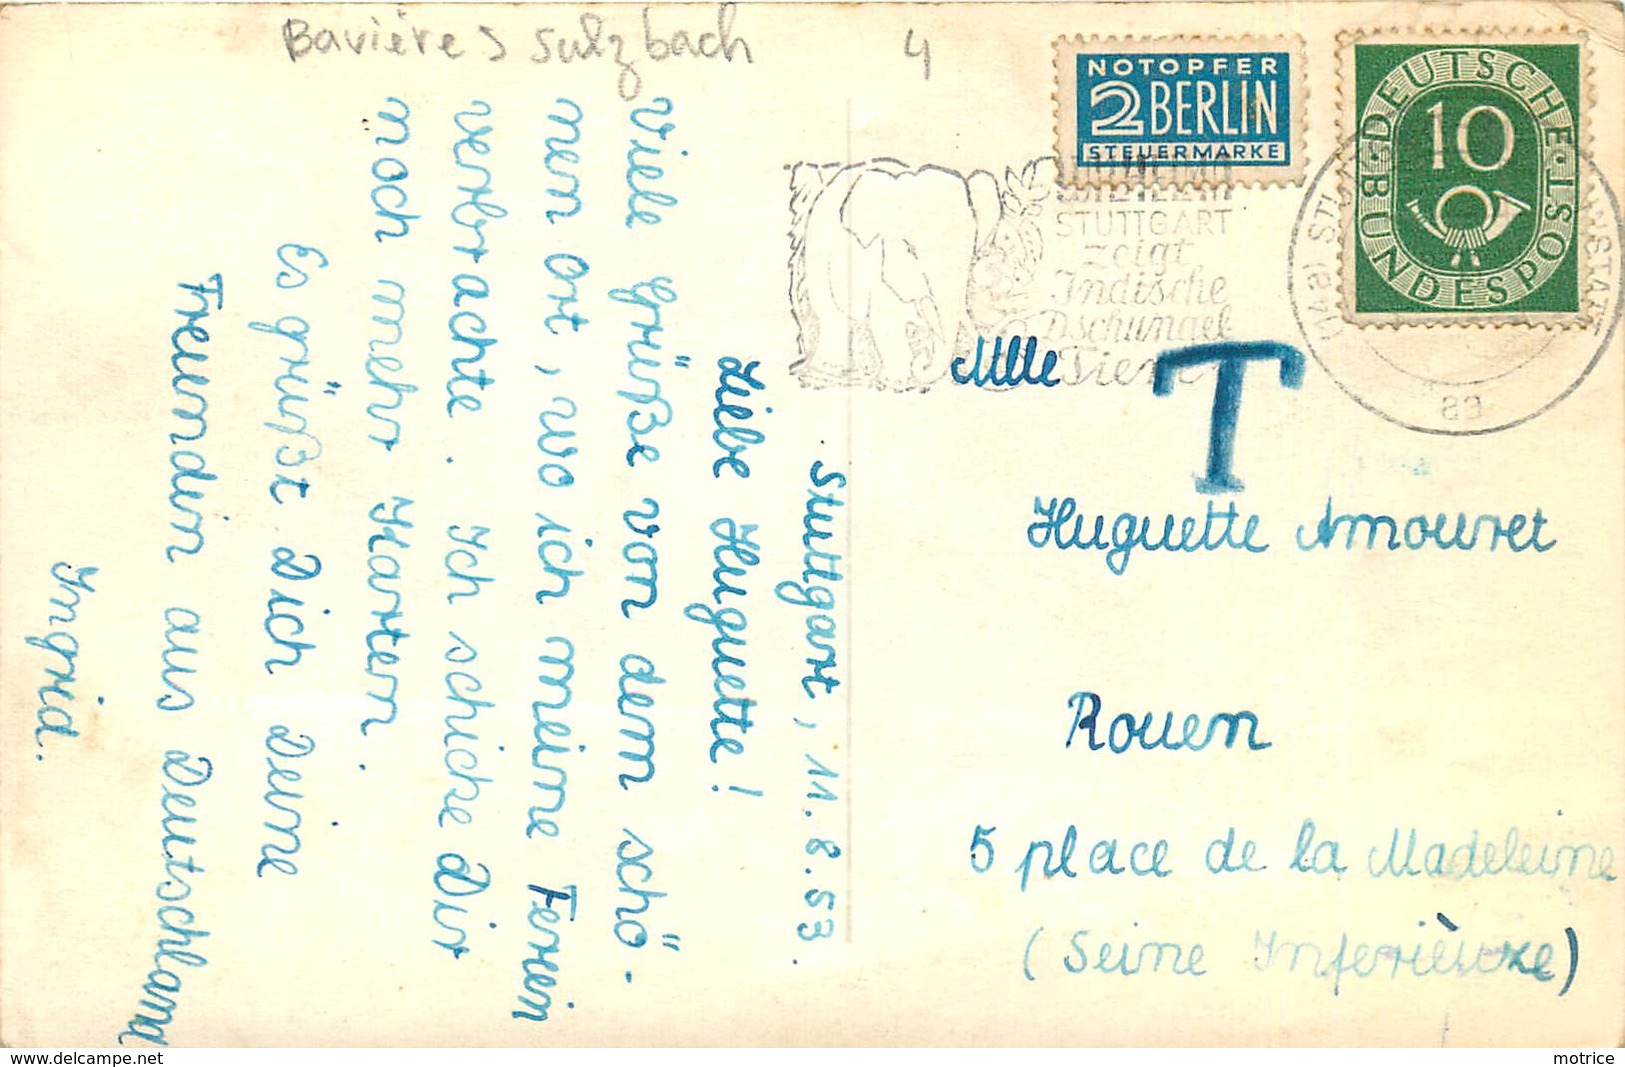 Bavière S Sulzbach
4
NOTOPFER
2 BERLIN
STEUERMARKE
DEUTSCHE BUNDESPOST
10
STUTTGART
zeigt
Indische
Dschungel
Tiere
83
T
Stuttgart, 11.8.53.
Liebe Huguette!
Viele Grüße von dem schö-
nen Ort, wo ich meine Ferein
verbrachte. Ich schicke Dir
noch mehr Karten.
Es grüßt Dich Deine
Freundin aus Deutschland
Ingrid.
Mlle
Huguette Amouret
Rouen
5 place de la Madeleine
(Seine Inferièure)
delcampe.net
motrice